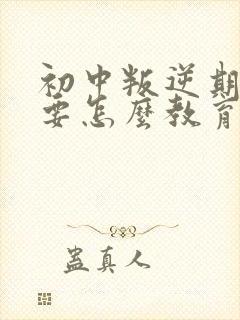 初中叛逆期
要怎麼教育
蓝真人